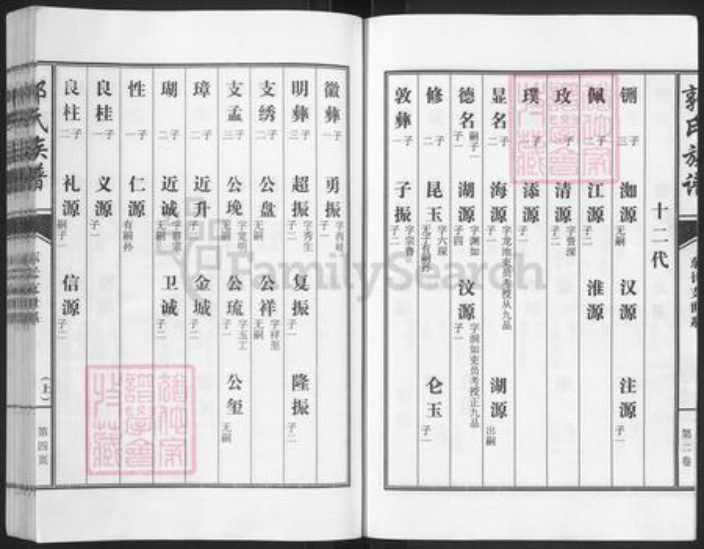 郭氏族谱
第二卷
十二代
铏 三子 洳源 无嗣 汉源 注源 子一
佩 二子 江源 子二 淮源
玫 二子 清源 字资深 子二
璞 一子 添源 子一
显名 二子 海源 字龙池吏员考授从九品 子一 湖源 出嗣
德名 一子 嗣子一 湖源 字渊如 子四 汶源 字润如吏员考授正九品 子一
修 二子 昆玉 字六琛 无子有嗣孙 仑玉 子一
敦彝 一子 子振 字宗鲁 子二
徽彝 一子 勇振 子一
明彝 三子 超振 字秀生 子二 复振 子一 隆振 子二
支绣 二子 公盘 无嗣 公祥 字祥至 无嗣
支孟 三子 公垸 无嗣 公琉 字玉工 子一 公玺 无嗣
璋 二子 近升 子一 金城 子二
瑚 二子 近诚 无嗣 卫诚 子二
性 一子 仁源 有嗣孙
良桂 一子 义源 子一
良柱 二子 礼源 嗣子一 信源 子二
氏族谱
（上）
第四页
FamilySearch